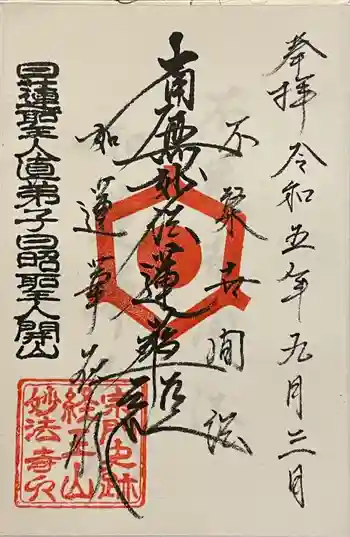 奉拝 令和五年九月三日
不染世間法
南無妙法蓮華経
如蓮華在水
日蓮聖人直弟子日昭聖人開山
宗門史跡
経王山
妙法寺